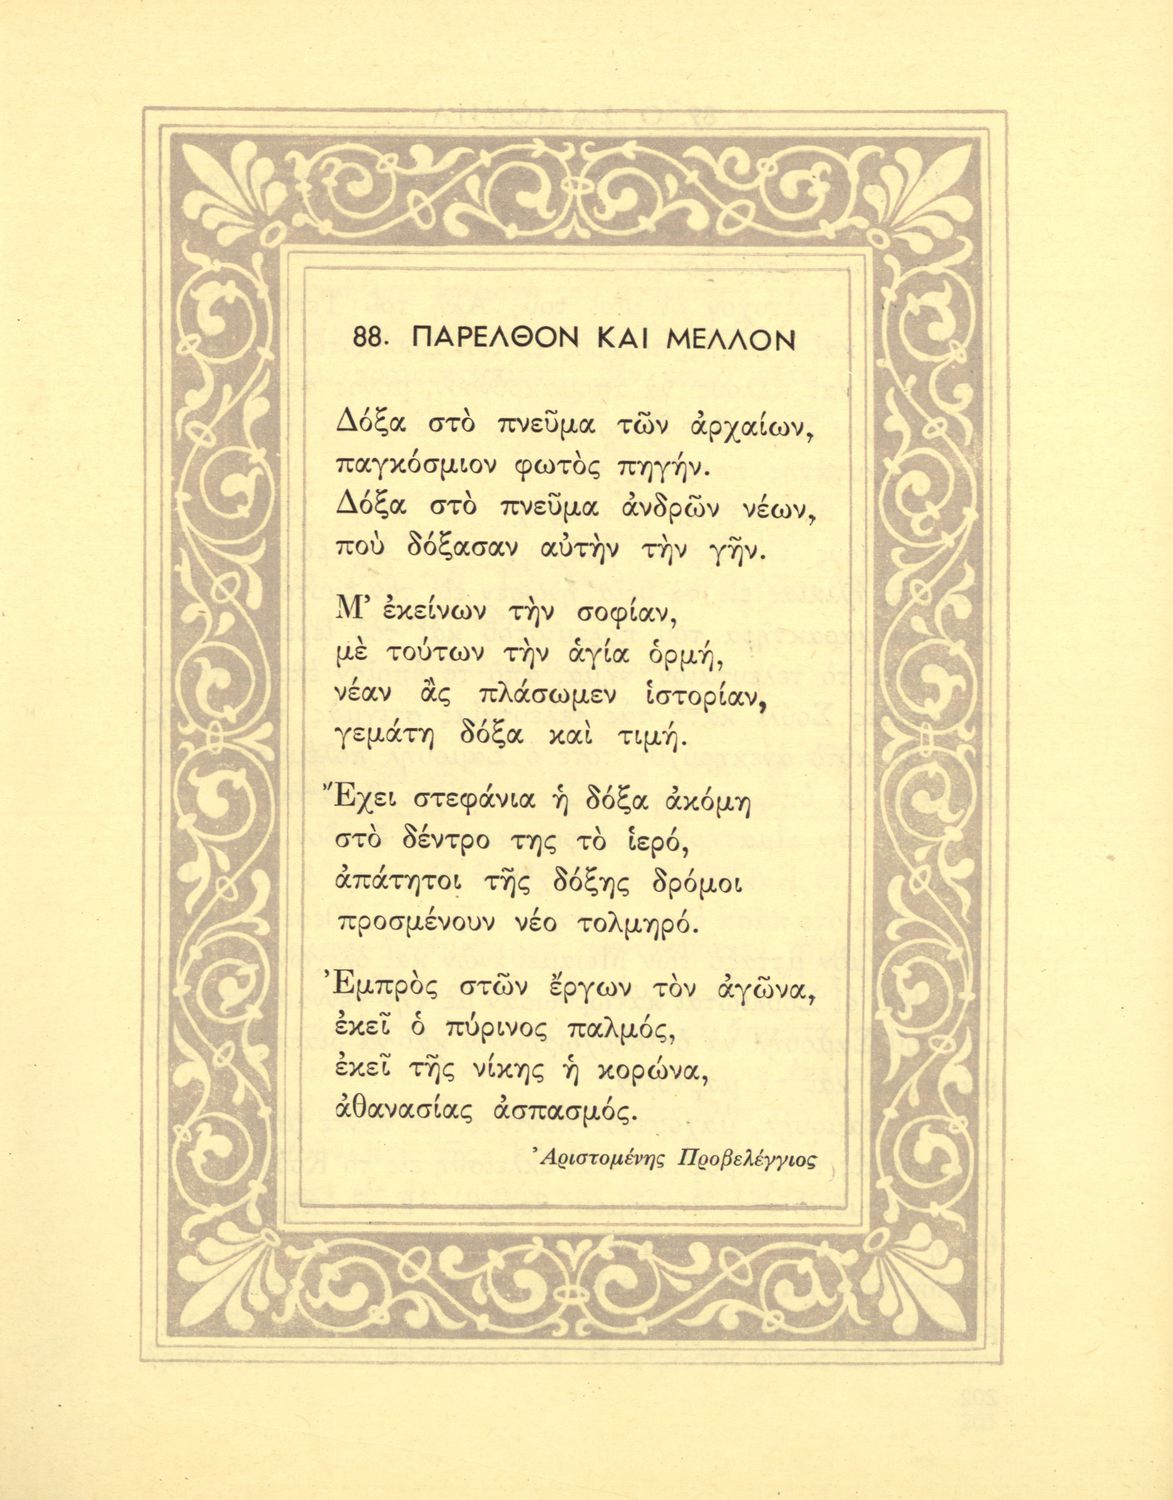 88. ΠΑΡΕΛΘΟΝ ΚΑΙ ΜΕΛΛΟΝ
Δόξα στὸ πνεῦμα τῶν ἀρχαίων,
παγκόσμιον φωτὸς πηγήν.
Δόξα στὸ πνεῦμα ἀνδρῶν νέων,
ποὺ δόξασαν αὐτὴν τὴν γῆν.
Μ’ ἐκείνων τὴν σοφίαν,
μὲ τούτων τὴν ἁγία ὁρμή,
νέαν ἂς πλάσωμεν ἱστορίαν,
γεμάτη δόξα καὶ τιμή.
Ἔχει στεφάνια ἡ δόξα ἀκόμη
στὸ δέντρο της τὸ ἱερό,
ἀπάτητοι τῆς δόξης δρόμοι
προσμένουν νέο τολμηρό.
Ἐμπρὸς στῶν ἔργων τὸν ἀγῶνα,
ἐκεῖ ὁ πύρινος παλμός,
ἐκεῖ τῆς νίκης ἡ κορώνα,
ἀθανασίας ἀσπασμός.
Ἀριστομένης Προβελέγγιος